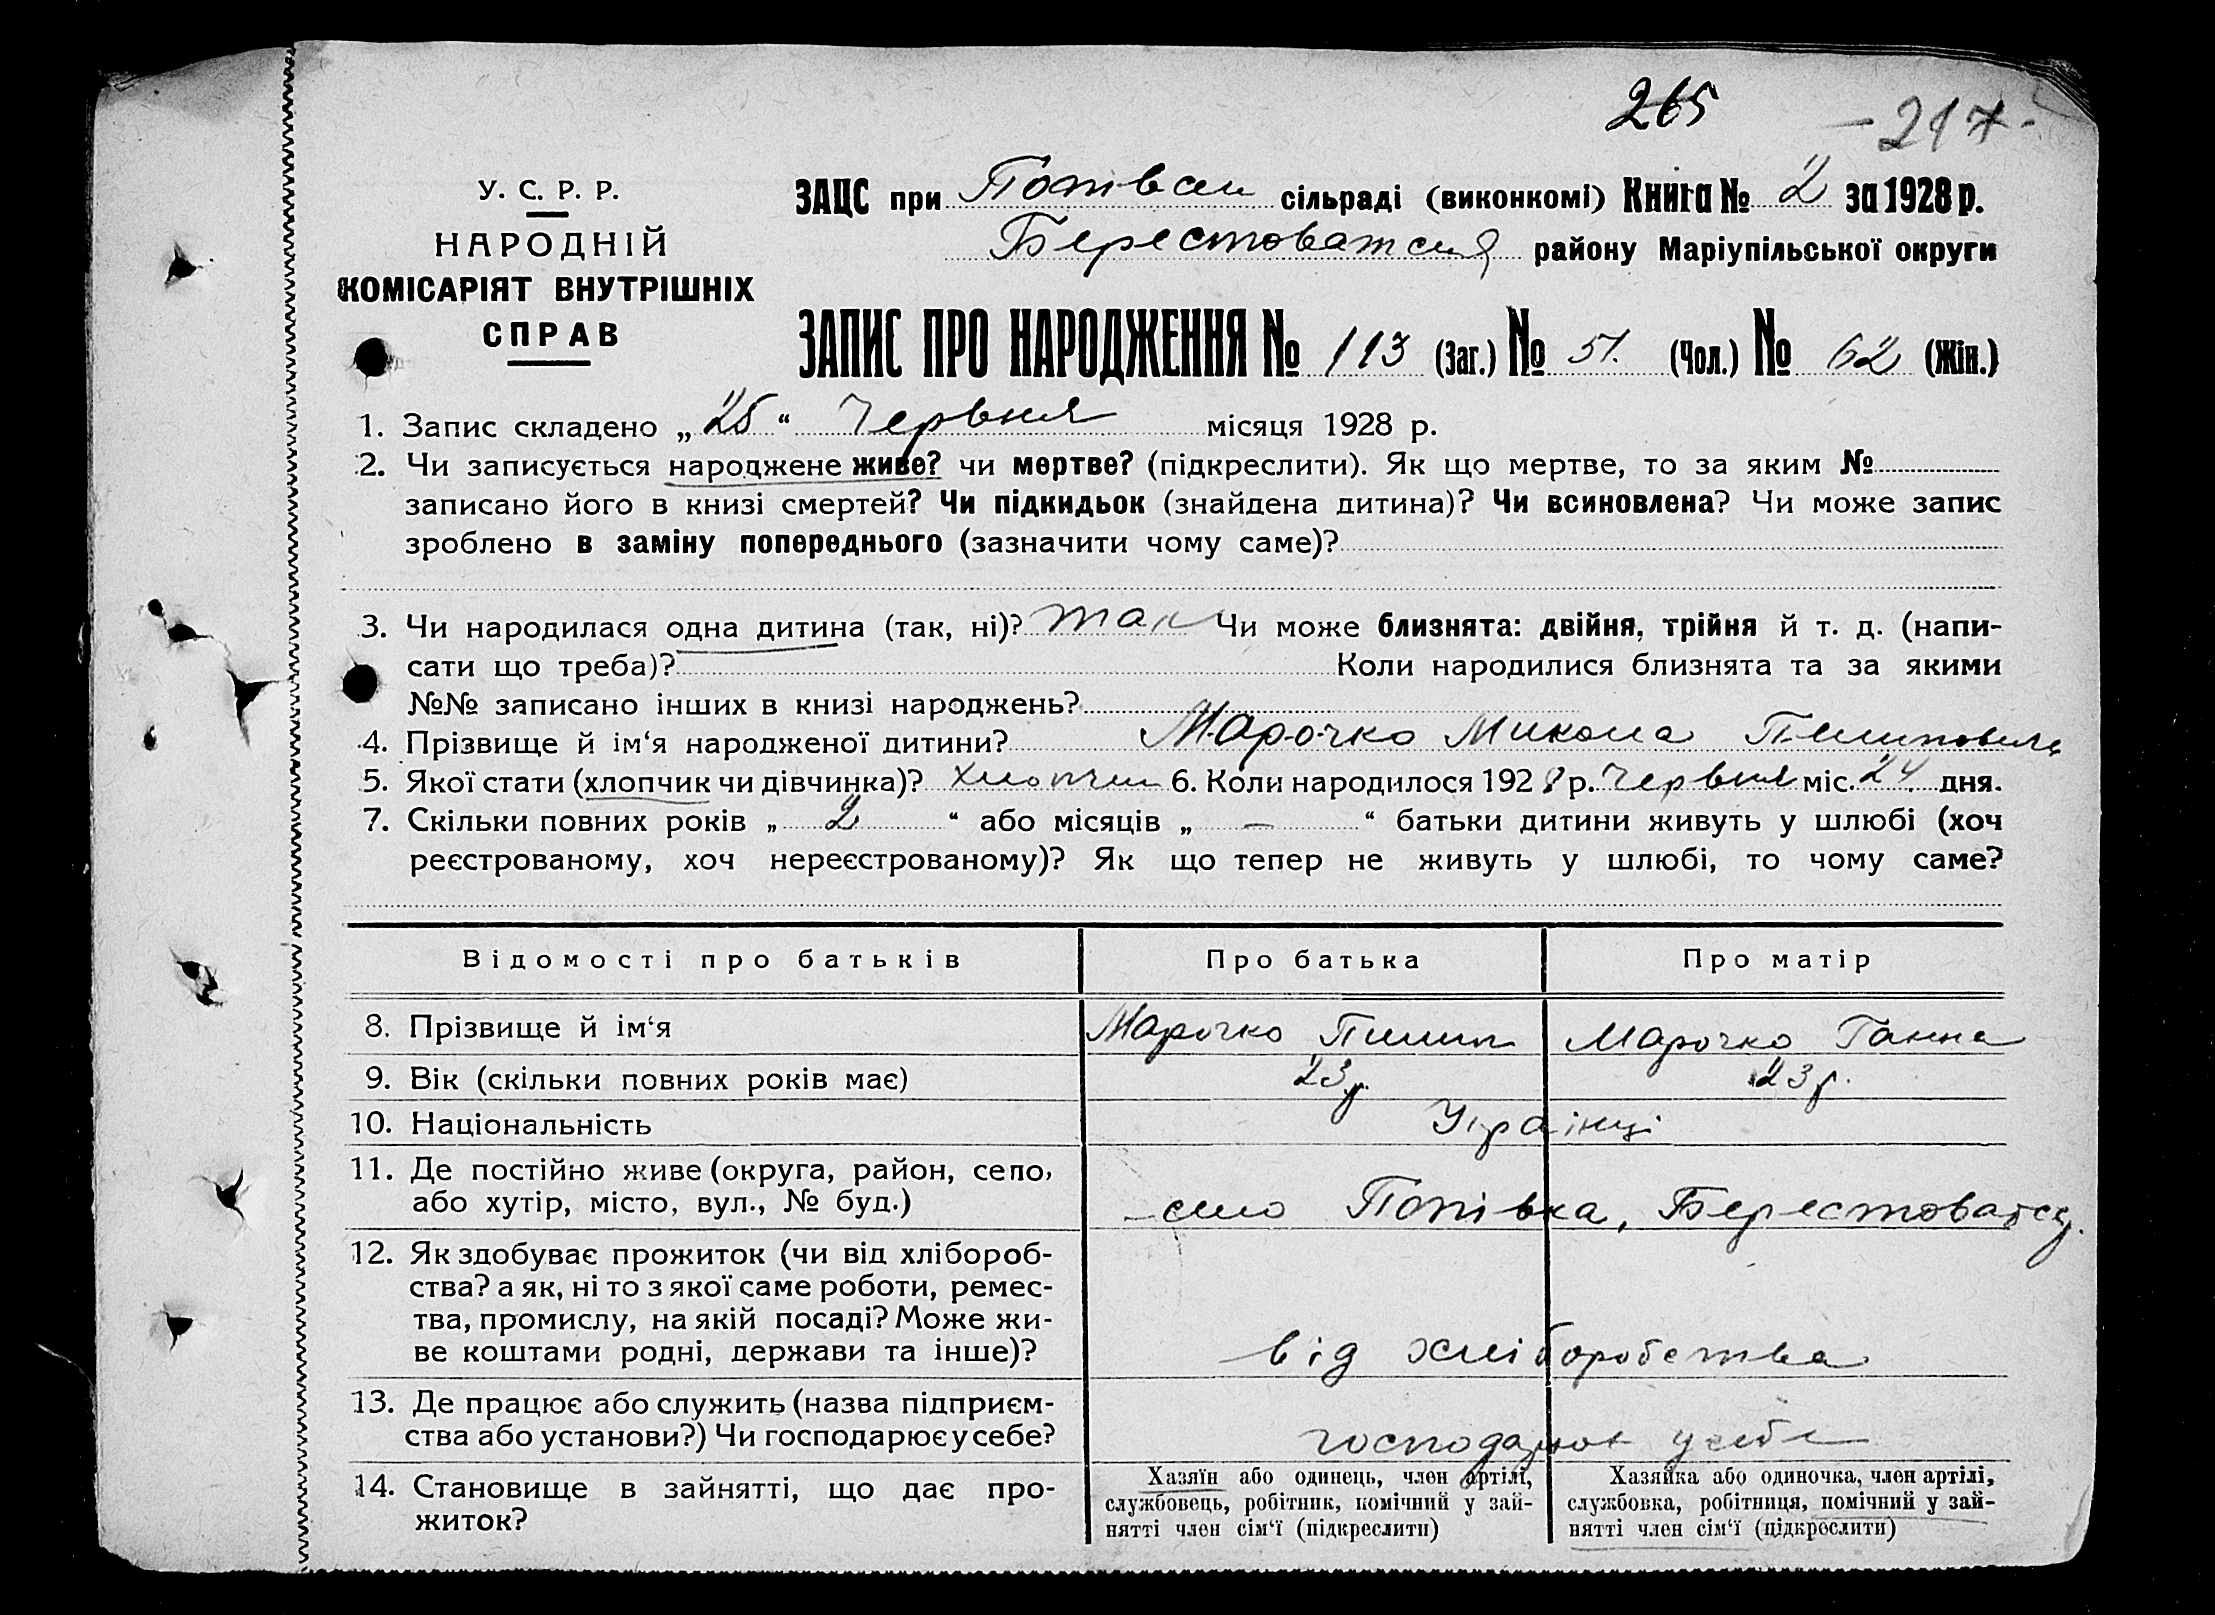 265
- 217 -
У. С. Р. Р.
НАРОДНІЙ
КОМІСАРІЯТ ВНУТРІШНІХ
СПРАВ
ЗАЦС при сільраді (виконкомі) Книга № 2 за 1928 р.
району Маріупільської округи
ЗАПИС ПРО НАРОДЖЕННЯ № 113 (Заг.) № 51. (Чол.) № 62 (Жін.)
1. Запис складено „ 25 “ Червня місяця 1928 р.
2. Чи записується народжене живе? чи мертве? (підкреслити). Як що мертве, то за яким №
записано його в книзі смертей? Чи підкидьок (знайдена дитина)? Чи всиновлена? Чи може запис
зроблено в заміну попереднього (зазначити чому саме)?
3. Чи народилася одна дитина (так, ні)? так Чи може близнята: двійня, трійня й т. д. (напи-
сати що треба)? Коли народилися близнята та за якими
№№ записано інших в книзі народжень?
4. Прізвище й ім‘я народженої дитини? Марочко Микола Пилипович
5. Якої стати (хлопчик чи дівчинка)? хлопчик 6. Коли народилося 1928 р. Червня міс. 24. дня.
7. Скільки повних років „ 2 “ або місяців „ — “ батьки дитини живуть у шлюбі (хоч
реєстрованому, хоч нереєстрованому)? Як що тепер не живуть у шлюбі, то чому саме?
Відомості про батьків Про батька Про матір
8. Прізвище й ім‘я Марочко Пилип Марочко Ганна
9. Вік (скільки повних років має) 23 р. 23 р.
10. Національність Українці
11. Де постійно живе (округа, район, село,
або хутір, місто, вул., № буд.) село Попівка,
12. Як здобуває прожиток (чи від хлібороб-
ства? а як, ні то з якої саме роботи, ремес-
тва, промислу, на якій посаді? Може жи-
ве коштами родні, держави та інше)? від хліборобства
13. Де працює або служить (назва підприєм-
ства або установи?) Чи господарює у себе? у себе
14. Становище в зайнятті, що дає про-
житок?
Хазяїн або одинець, член артілі,
службовець, робітник, помічний у зай-
нятті член сім‘ї (підкреслити)
Хазяйка або одиночка, член артілі,
службовка, робітниця, помічний у зай-
нятті член сім‘ї (підкреслити)